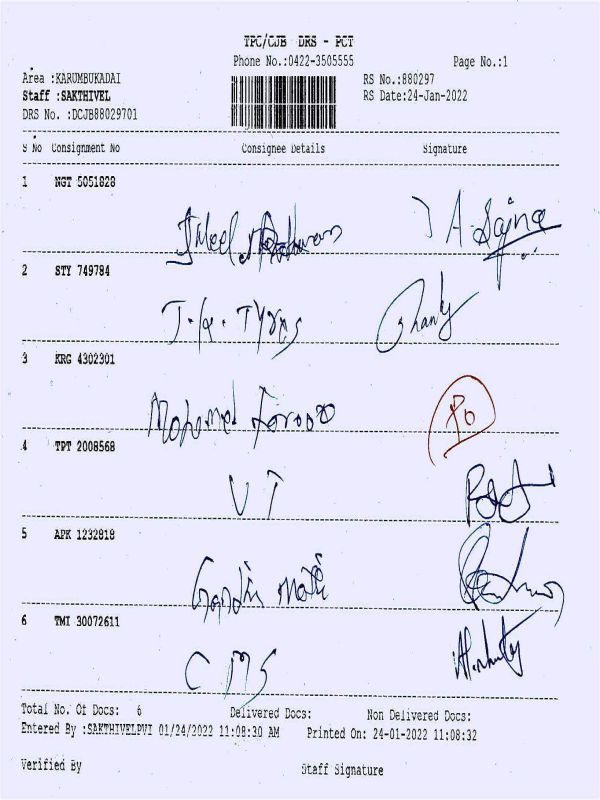 TPC/CJB DRS - PCT
Phone No.:0422-3505555 Page No.:1
Area :KARUMBUKADAI RS No.:880297
Staff :SAKTHIVEL RS Date:24-Jan-2022
DRS No. :DCJB88029701
S No Consignment No Consignee Details Signature
1 NGT 5051828
A. Sajna
2 STY 749784
3 KRG 4302301
Mohamed Farooq
4 TPT 2008568
V T
5 APK 1232818
6 TMI 30072611
C M S
Total No. Of Docs: 6 Delivered Docs: Non Delivered Docs:
Entered By :SAKTHIVELPVI 01/24/2022 11:08:30 AM Printed On: 24-01-2022 11:08:32
Verified By Staff Signature